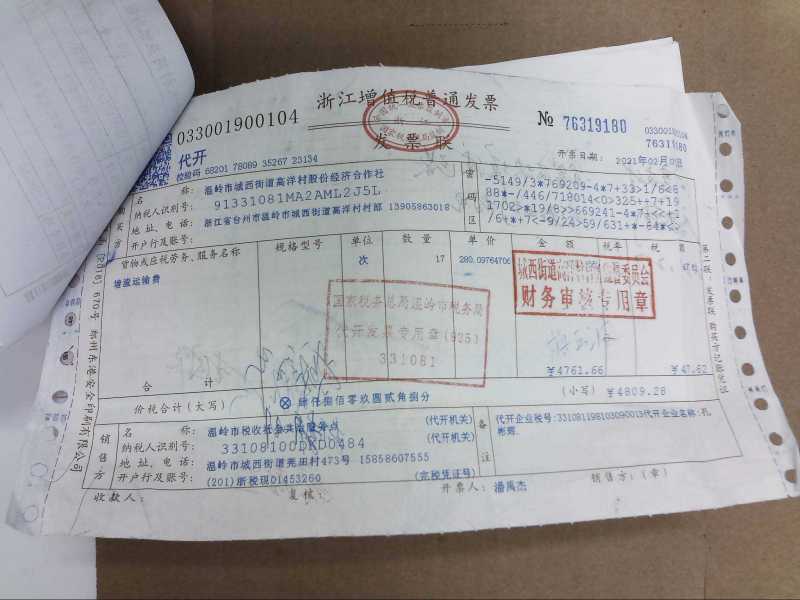 浙江增值税普通发票
033001900104
发票联
№ 76319180
033001900104
76319180
代开
校验码 68201 78089 35267 23134
开票日期：2021年02月
购买方
名 称：温岭市城西街道高洋村股份经济合作社
纳税人识别号：91331081MA2AML2J5L
地 址、电 话：浙江省台州市温岭市城西街道高洋村村部 13905863018
开户行及账号：
密码区
-5149/3*769209-4*7+33>1/6<8
88*-/446/718014<0>325++7+19
1702>*19/8>>669241-4*7+<<+1
/6+*+7<-9/24>59/631+*-84*<>
货物或应税劳务、服务名称
规格型号
单位
数 量
单 价
金 额
税率
税 额
增流运输费
次
17
280.0976470
城西街道
财务审核专用章
国家税务总局温岭市税务局
代开发票专用章(825)
331081
合 计
¥4761.66
¥47.62
价税合计（大写）
⊗ 肆仟捌佰零玖圆贰角捌分
（小写）¥4809.28
销售方
名 称：温岭市税收社会共治服务点
（代开机关）
纳税人识别号：33108100DKD0484
（代开机关）
地 址、电 话：温岭市城西街道芷田村473号 15858607555
开户行及账号：(201)浙税现01453260
（完税凭证号）
备注
代开企业税号:331081198103090013代开企业名称:孔
收款人：
复核：
开票人：潘禹杰
销售方：（章）
第二联：发票联 购买方记账凭证